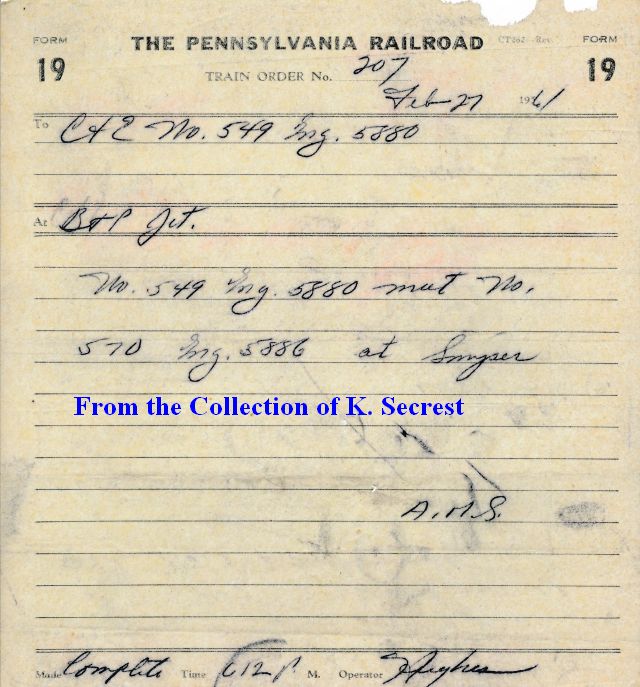 FORM THE PENNSYLVANIA RAILROAD CT262 Rev. FORM
19 TRAIN ORDER No. 207 19
Feb 27 1961
To C&E No. 549 Eng. 5880
At B&P Jct.
No. 549 Eng. 5880 meet No.
570 Eng. 5886 at Smyser
From the Collection of K. Secrest
A.M.S.
Made Complete Time 612 P M. Operator Hughes